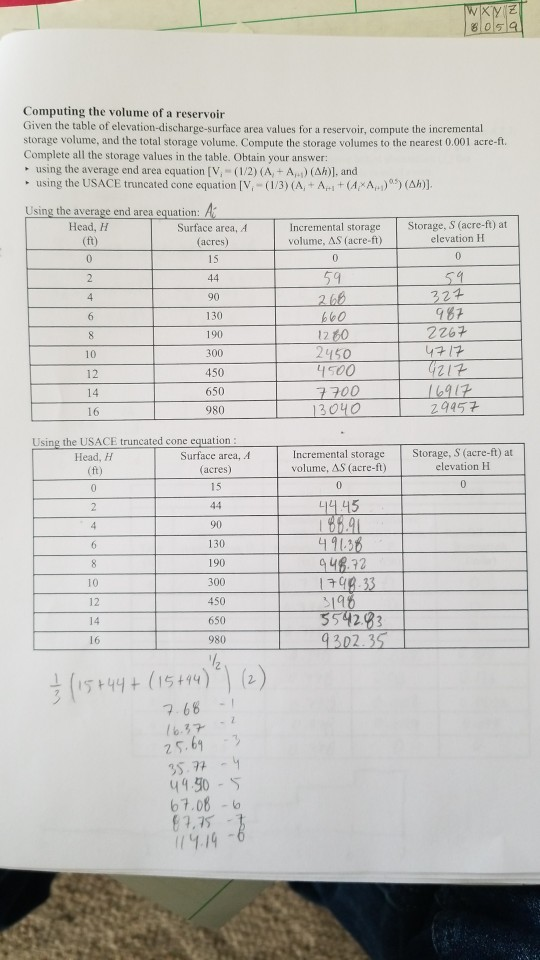 W X Y Z
8 0 5 9
Computing the volume of a reservoir
Given the table of elevation-discharge-surface area values for a reservoir, compute the incremental
storage volume, and the total storage volume. Compute the storage volumes to the nearest 0.001 acre-ft.
Complete all the storage values in the table. Obtain your answer:
‣ using the average end area equation [Vᵢ = (1/2) (Aᵢ + Aᵢ₊₁) (Δh)], and
‣ using the USACE truncated cone equation [Vᵢ = (1/3) (Aᵢ + Aᵢ₊₁ + (Aᵢ×Aᵢ₊₁)⁰·⁵) (Δh)].
Using the average end area equation:
Head, H (ft) Surface area, A (acres) Incremental storage volume, ΔS (acre-ft) Storage, S (acre-ft) at elevation H
0 15 0 0
2 44 59 59
4 90 268 327
6 130 660 987
8 190 1280 2267
10 300 2450 4717
12 450 4500 9217
14 650 7700 16917
16 980 13040 29957
Using the USACE truncated cone equation :
Head, H (ft) Surface area, A (acres) Incremental storage volume, ΔS (acre-ft) Storage, S (acre-ft) at elevation H
0 15 0 0
2 44 44.45
4 90 188.91
6 130 491.38
8 190 948.72
10 300 1798.33
12 450 3198
14 650 5542.83
16 980 9302.35
1/3 (15+44+ (15+44)^1/2) (2)
7.68 - 1
16.37 - 2
25.69 - 3
35.77 - 4
49.50 - 5
67.08 - 6
87.75 - 7
114.19 - 8